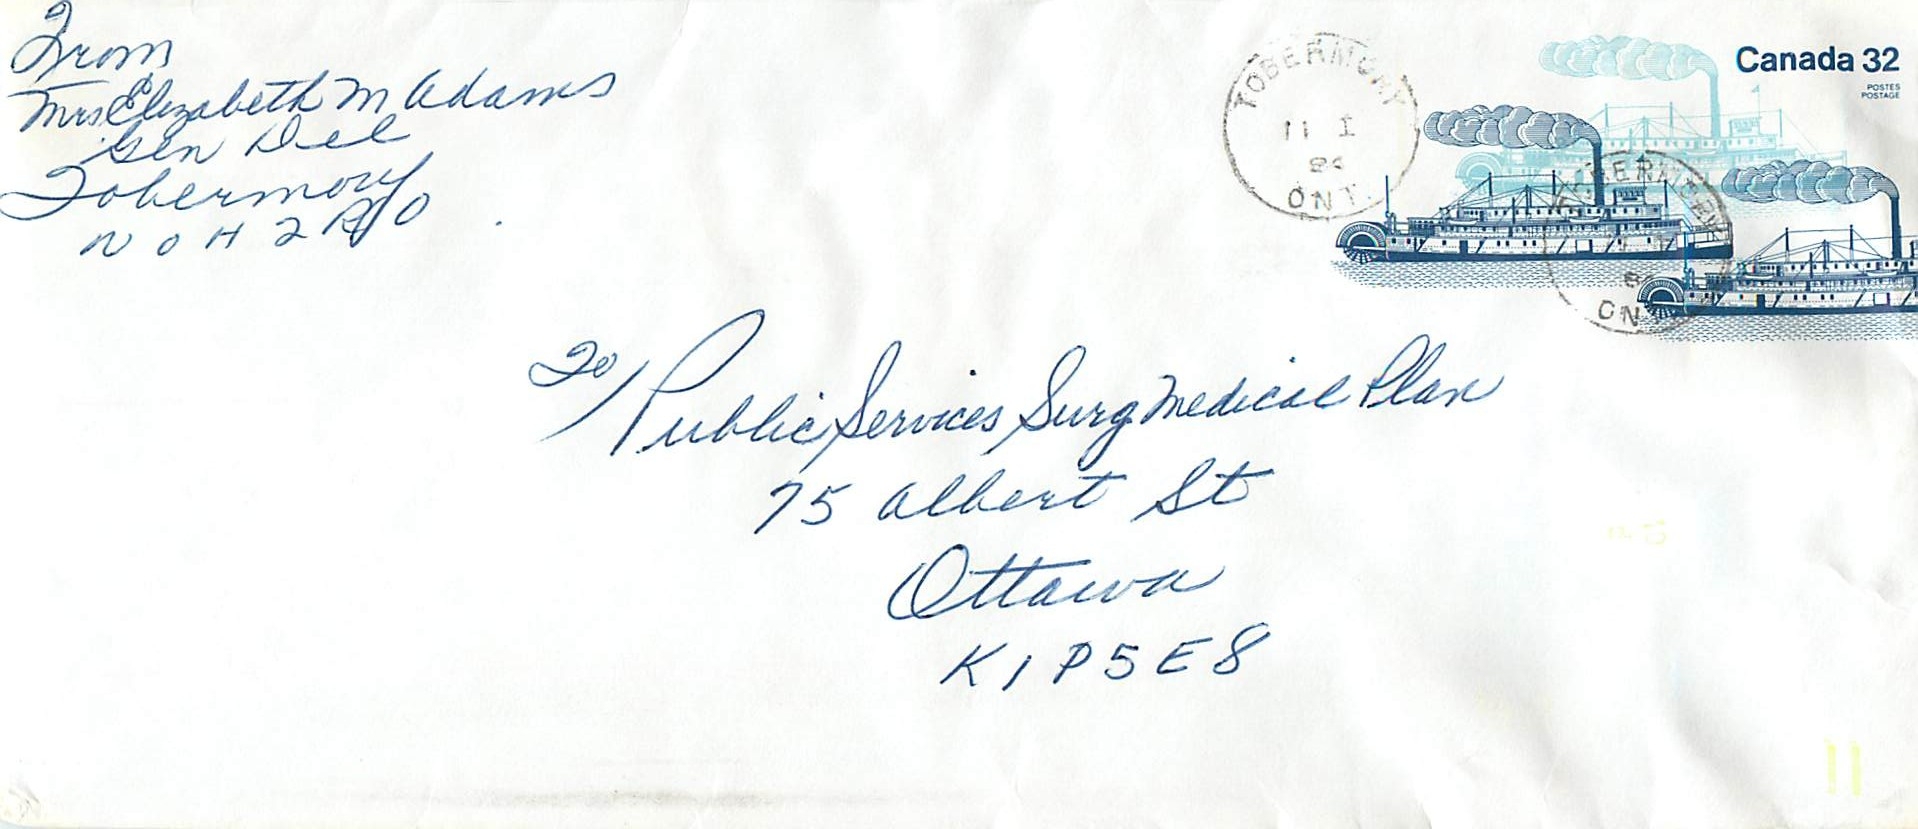 From
Mrs Elizabeth M Adams
Gen Del
Tobermory
N0H2R0
TOBERMORY
11 I
ONT.
Canada 32
POSTES
POSTAGE
TOBERMORY
ONT
To/ Public Services Surg Medical Plan
75 Albert St
Ottawa
K1P5E8